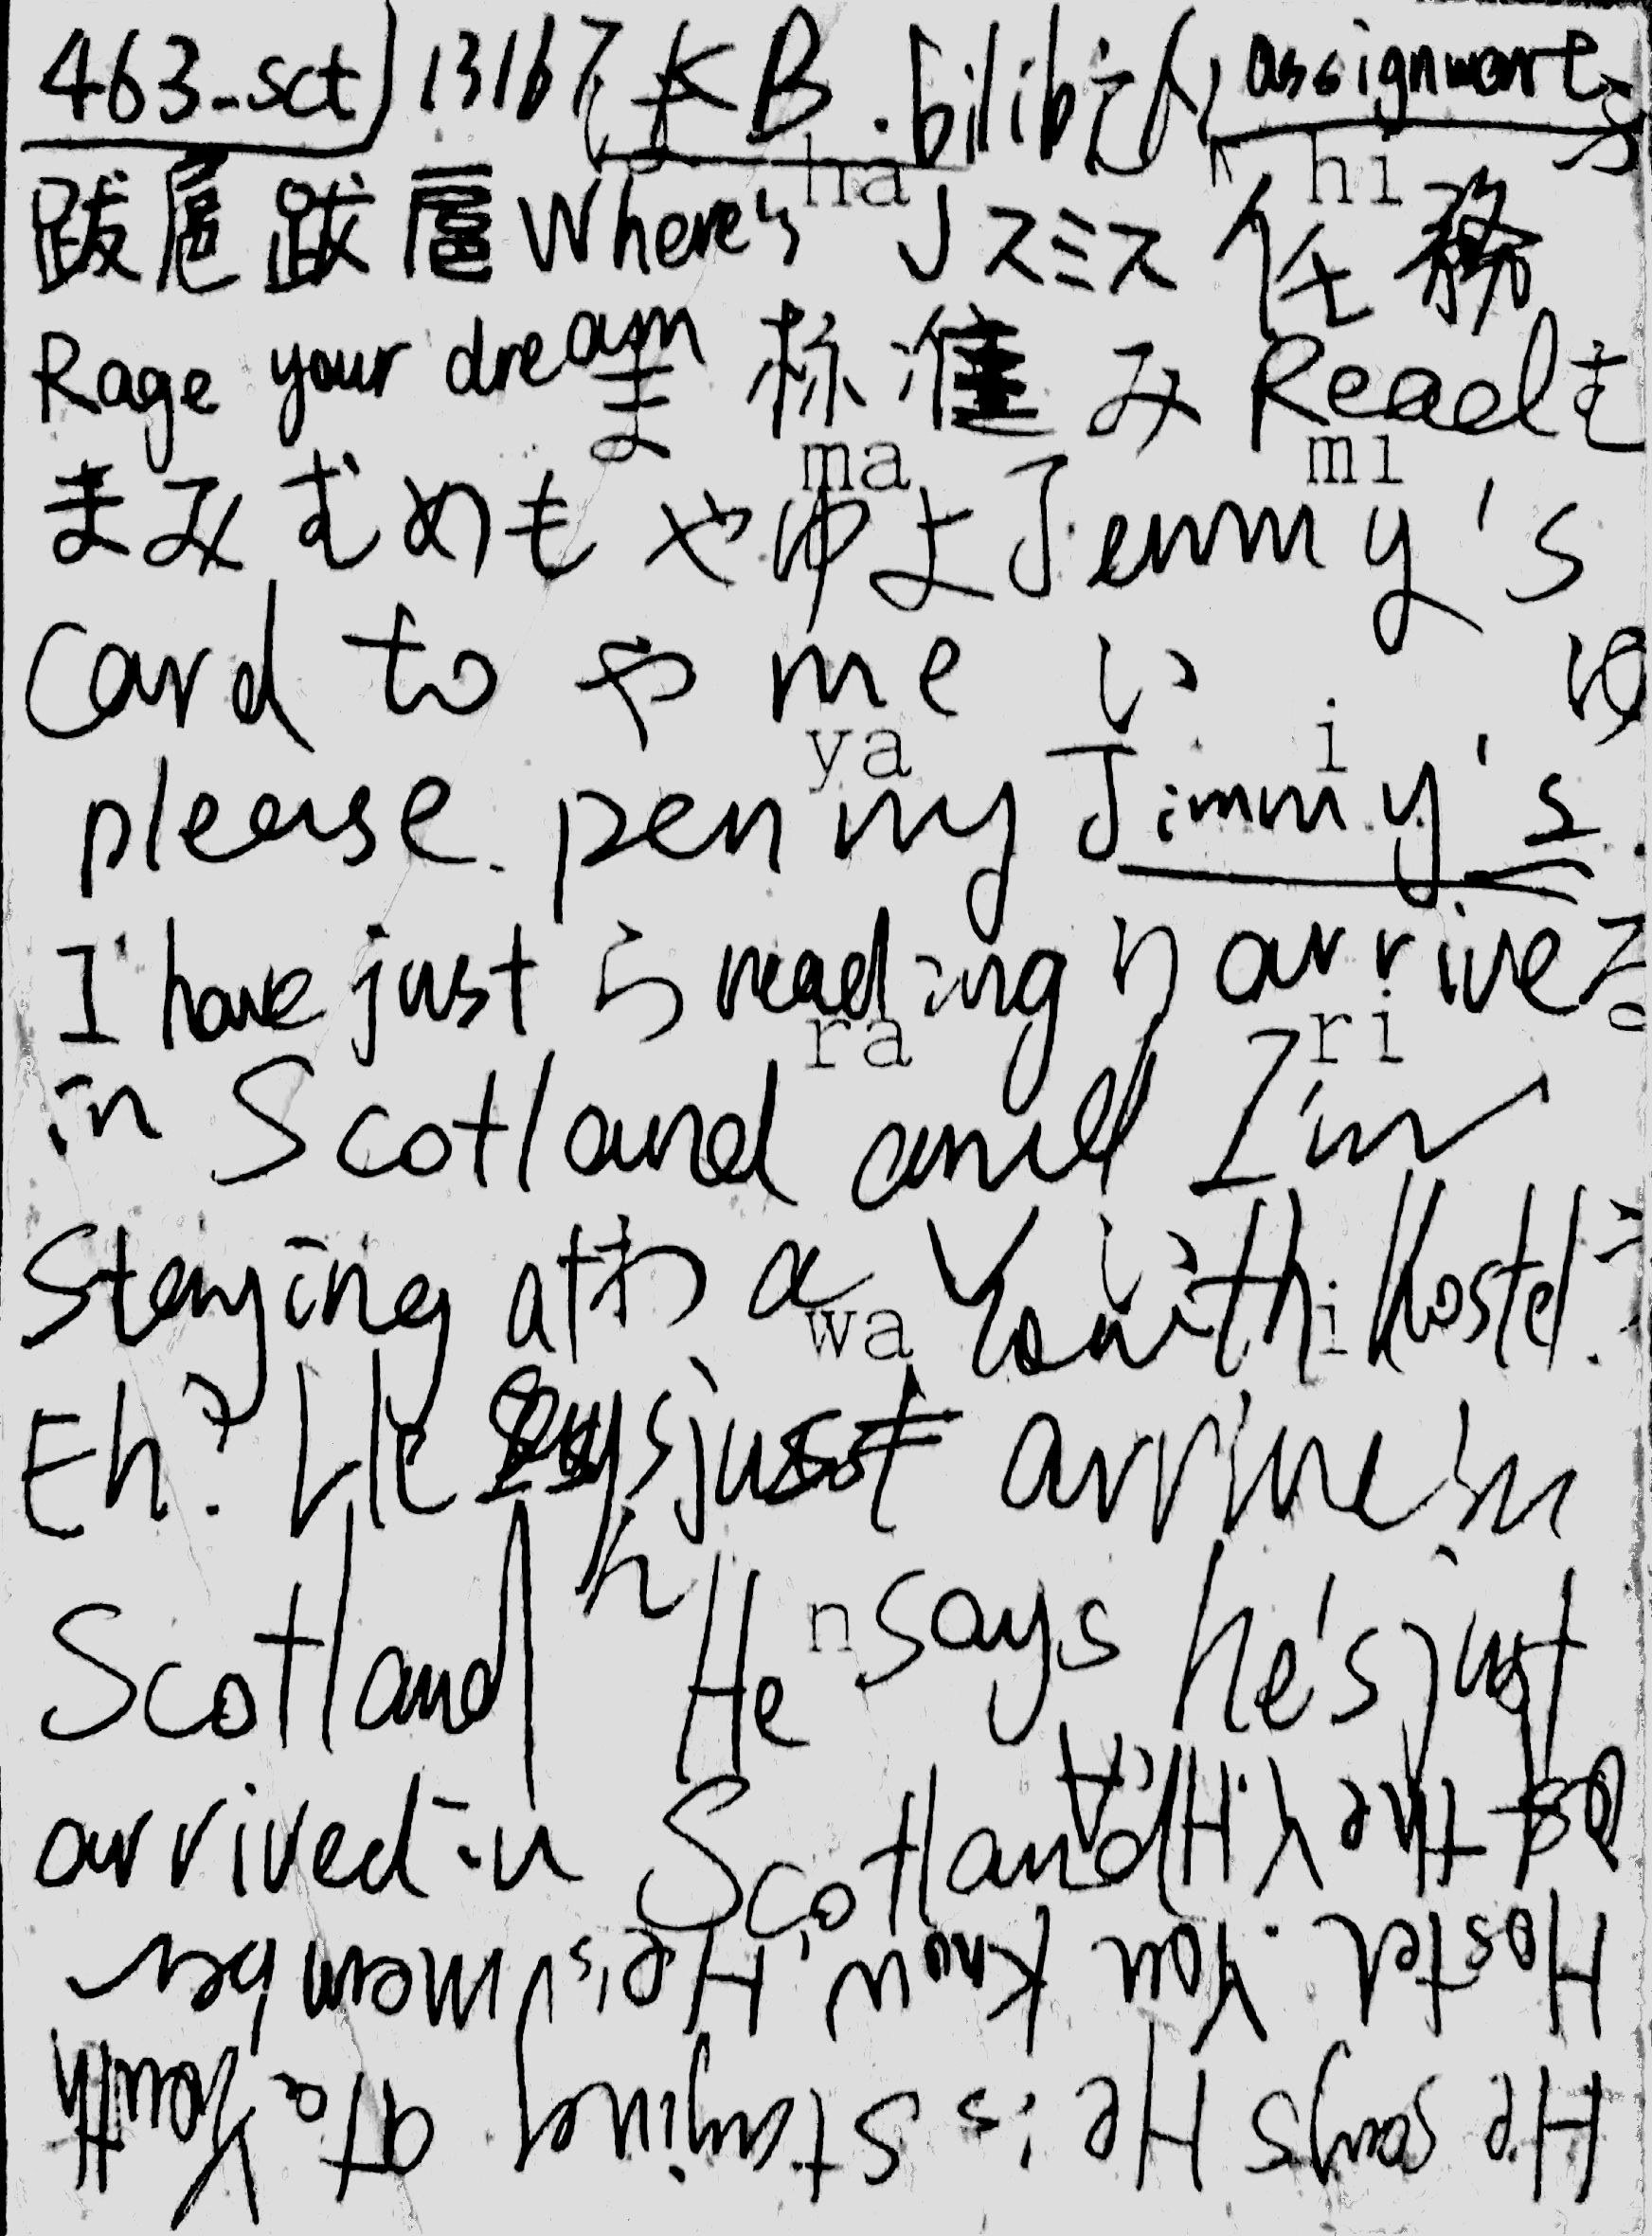 463_sct) 1316 KB. bilibili assignment
ha hi
跋扈跋扈 Where's Jスミス 任務
Rage your dream ま 标准 み Read む
ma mi
まみむめもやゆよ Jenny's
Card to や me い ゆ
ya i
please. penny Jimmy's.
I have just ら reading り arrive る
ra ri
in Scotland and I'm
Staying at わ a Youth い Hostel.
wa i
Eh? He says just arrive in
ん
n
Scotland He says he's just
arrived in Scotland
of the Y.H.A.
Hostel. You know. He's member
He says He is Staying at a Youth